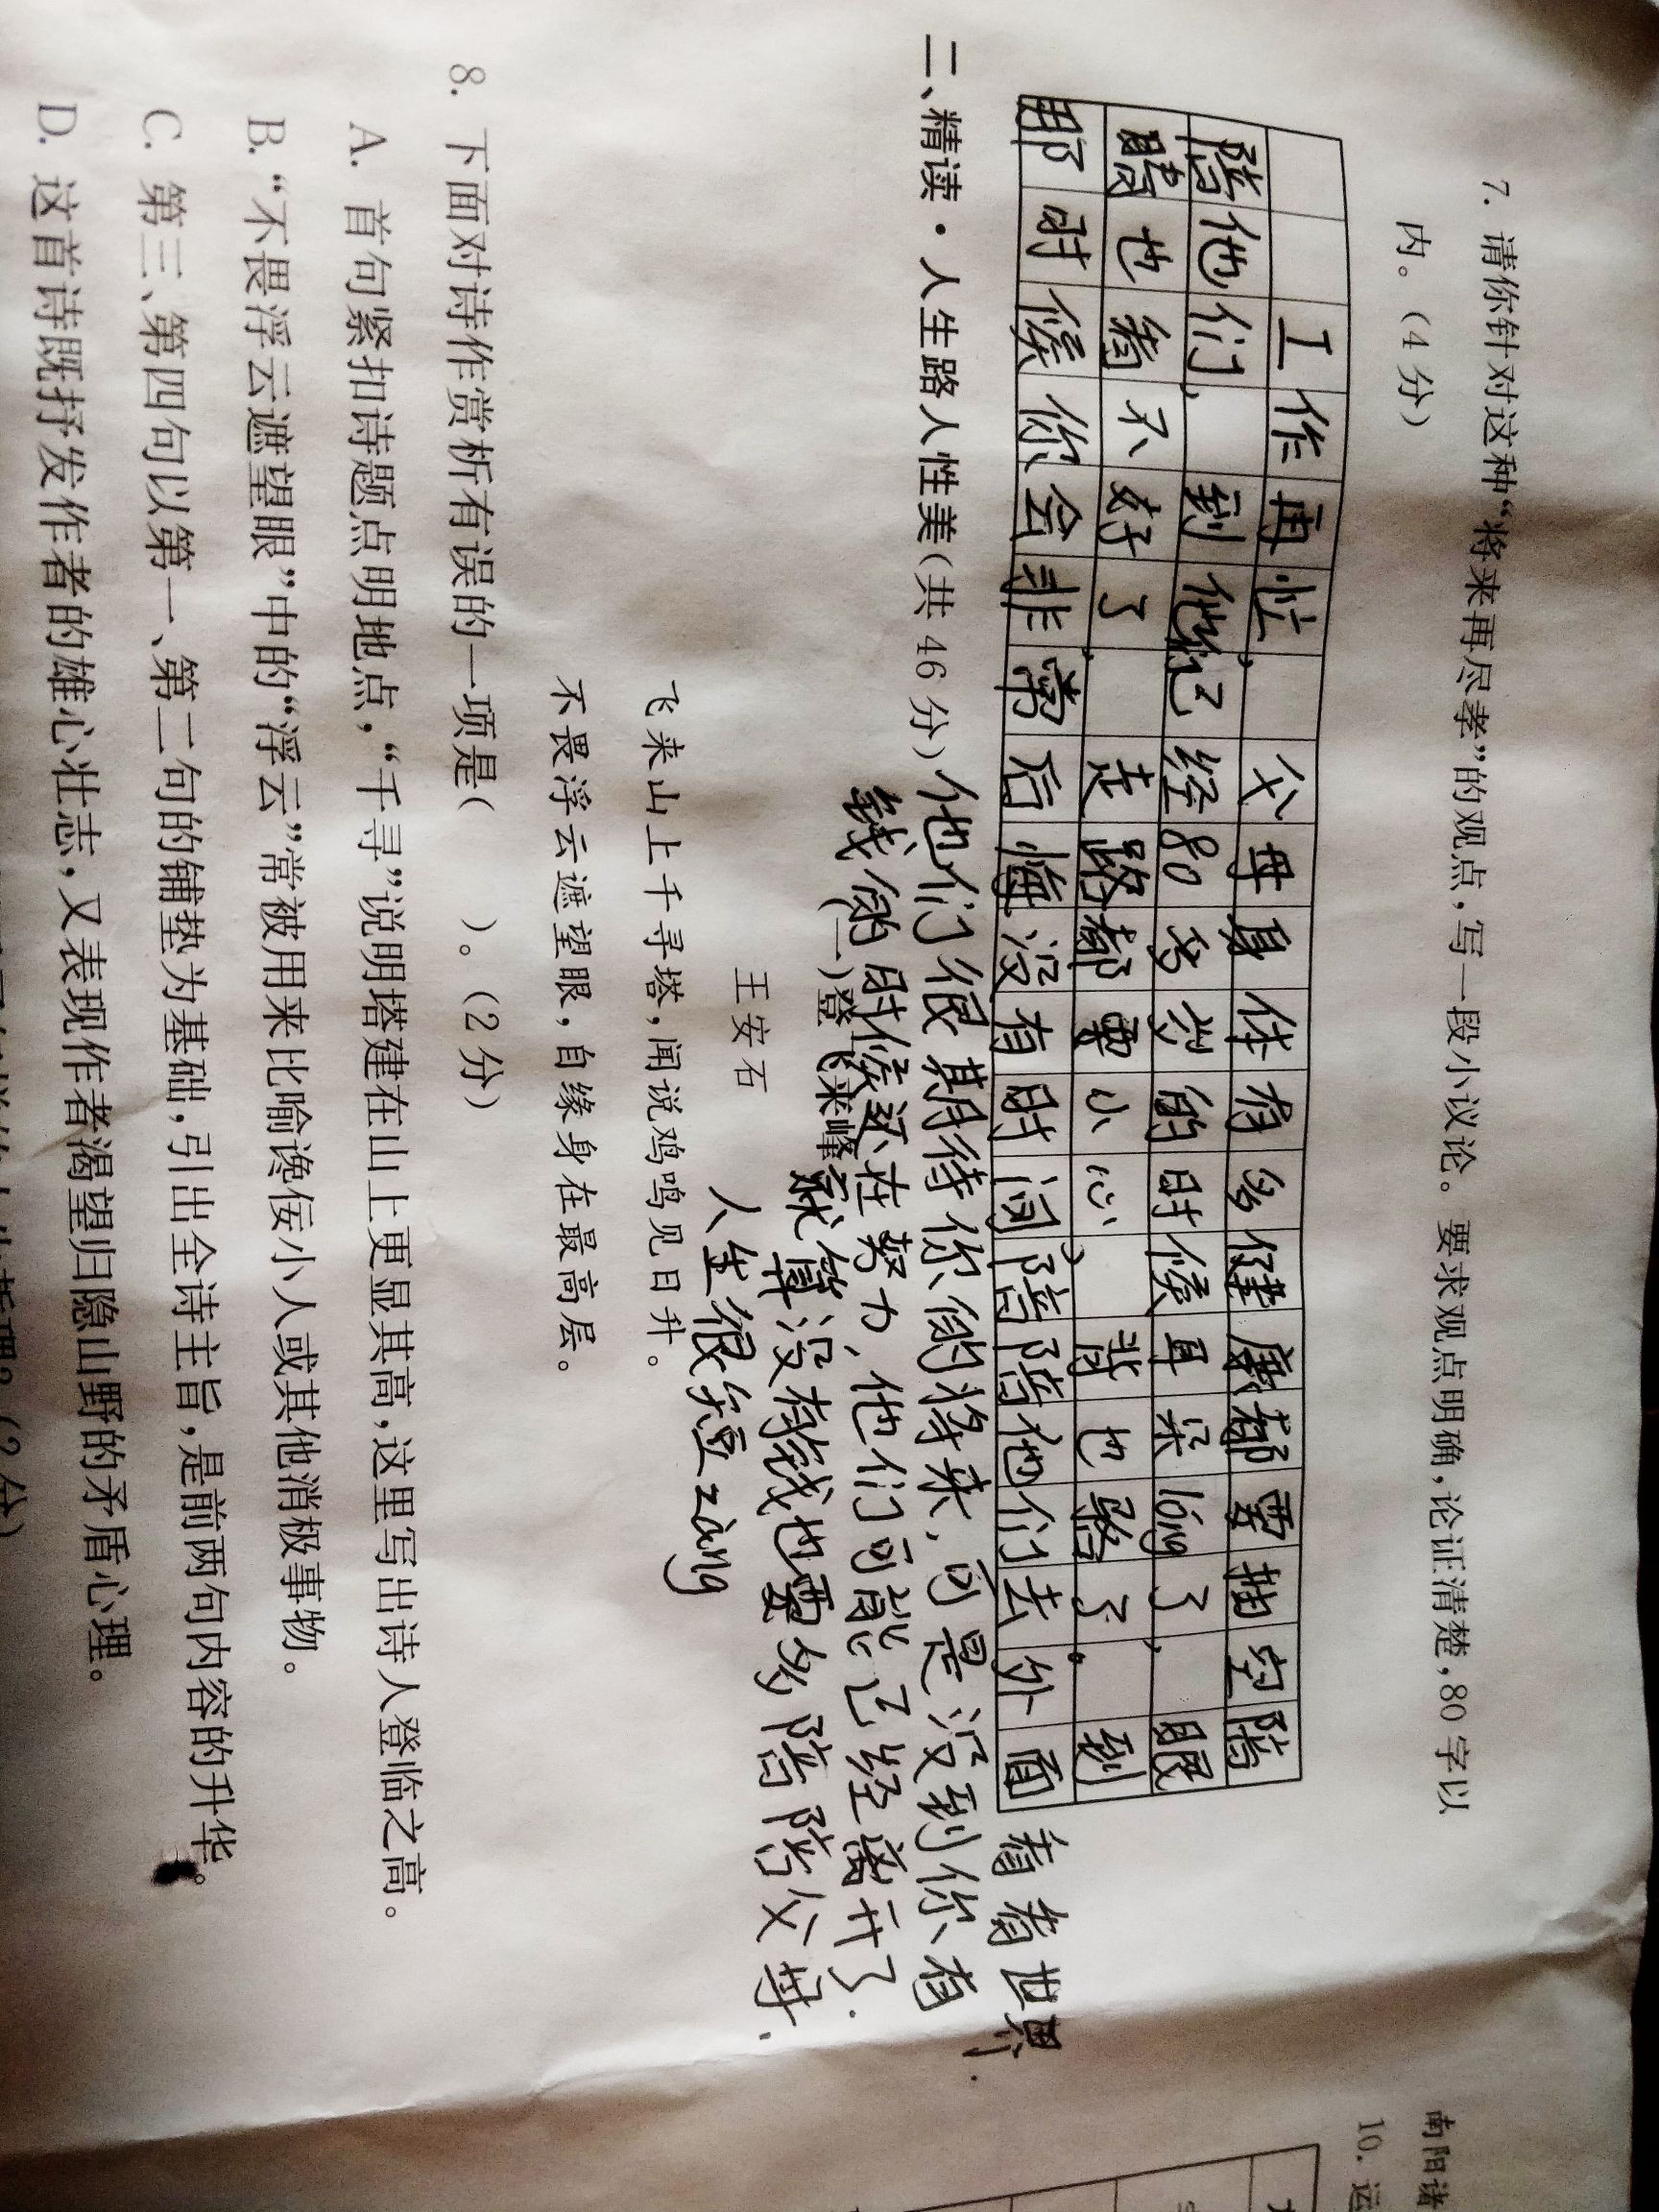 7. 请你针对这种“将来再尽孝”的观点,写一段小议论。要求观点明确,论证清楚,80字以
内。(4分)
工作再忙,父母身体有多健康都要抽空陪
陪他们,到他们已经80多岁的时候耳朵lóng了,眼
睛也看不好了,走路都要小心,背也骆了。到
那时候你会非常后悔没有时间陪陪他们去外面看看世界.
二、精读·人生路人性美(共46分)
他们很期待你的将来,可是没到你有
钱的时候还在努力,他们可能已经离开了.
就算没有钱也要多陪陪父母.
人生很短zàng
(一)登飞来峰
王安石
飞来山上千寻塔,闻说鸡鸣见日升。
不畏浮云遮望眼,自缘身在最高层。
8. 下面对诗作赏析所有误的一项是( )。(2分)
A. 首句紧扣诗题点明地点,“千寻”说明塔建在山上更显其高,这里写出诗人登临之高。
B. “不畏浮云遮望眼”中的“浮云”常被用来比喻谗佞小人或其他消极事物。
C. 第三、第四句以第一、第二句的铺垫为基础,引出全诗主旨,是前两句内容的升华。
D. 这首诗既抒发作者的雄心壮志,又表现作者渴望归隐山野的矛盾心理。
南阳诸
10. 运